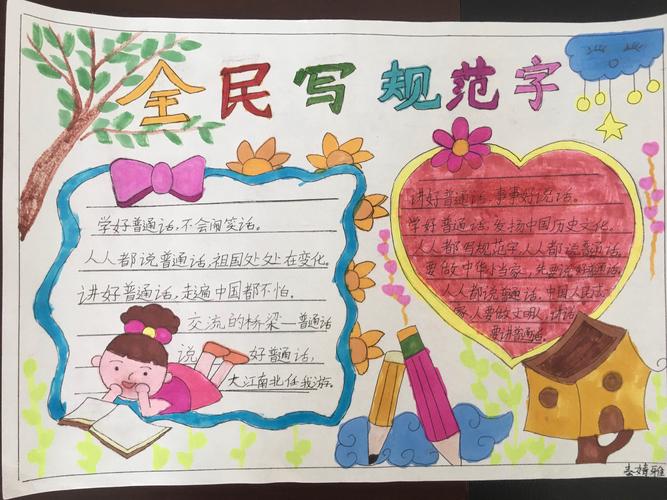 全民写规范字
学好普通话,不会闹笑话。
人人都说普通话,祖国处处在变化。
讲好普通话,走遍中国都不怕。
交流的桥梁—普通话
说好普通话,
大江南北任我游。
讲好普通话,事事好说话。
学好普通话,发扬中国历史文化。
人人都写规范字人人都说普通话,
要做中华小当家,先要说好普通话。
人人都说普通话,中国人民成一
家,人要做文明人,讲话
要讲普通话。